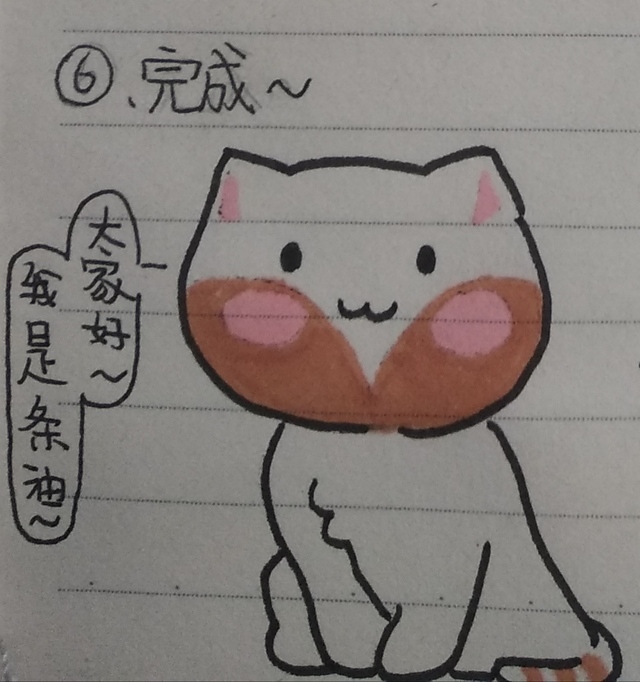 ⑥、完成～
大家好～
我是条油～